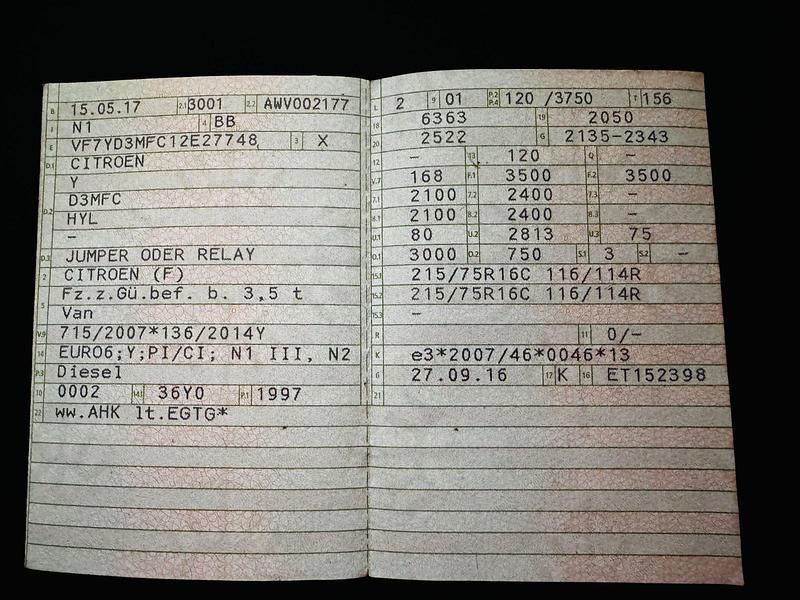 B 15.05.17 2.1 3001 2.2 AWV002177
J N1 4 BB
E VF7YD3MFC12E27748 3 X
D.1 CITROEN
Y
D.2 D3MFC
HYL
–
D.3 JUMPER ODER RELAY
2 CITROEN (F)
5 Fz.z.Gü.bef. b. 3,5 t
Van
V.9 715/2007*136/2014Y
14 EURO6;Y;PI/CI; N1 III, N2
P.3 Diesel
10 0002 14.1 36Y0 P.1 1997
22 ww.AHK lt.EGTG*
L 2 9 01 P.2 P.4 120 /3750 T 156
18 6363 19 2050
20 2522 G 2135-2343
12 – 13 120 Q –
V.7 168 F.1 3500 F.2 3500
7.1 2100 7.2 2400 7.3 –
8.1 2100 8.2 2400 8.3 –
U.1 80 U.2 2813 U.3 75
O.1 3000 O.2 750 S.1 3 S.2 –
15.1 215/75R16C 116/114R
15.2 215/75R16C 116/114R
15.3 –
R 11 0/–
K e3*2007/46*0046*13
6 27.09.16 17 K 16 ET152398
21